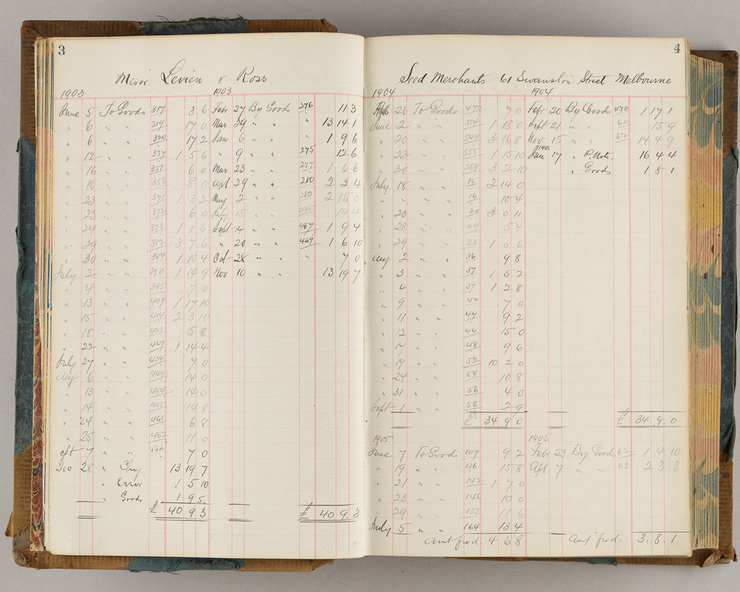 3
Messrs Levien & Ross
1903 1903
June 5 To Goods 317 3 6 Febr 27 By Goods 276 11 3
" 6 " " 319 17 0 Mar 29 " " 13 14 1
" 6 " " 320 17 2 June 6 " " 1 9 6
" 12 " " 337 1 5 6 " 9 " " 275 12 6
" 16 " " 6 0 Mar 23 " " 277 1 6 6
" 18 " " 8 0 29 " " 280 2 3 4
" 23 " " 371 1 3 2 May 2 " " 280 2 15 0
" 23 " " 373 6 0 July 15 " " 14 4
" 24 " " 373 1 1 6 Sept 14 " " 467 1 9 4
" 29 " " 3 7 6 " 20 " " 469 1 6 10
" 30 " " 1 10 4 Oct 28 " " 7 0
July 2 " " 390 1 14 9 Nov 10 " " 13 19 7
" 4 " " 395 7 0
" 13 " " 409 1 17 10
" 15 " " 414 2 3 10
" 18 " " 5 8
" 22 " " 427 1 14 4
July 27 " " 434 7 0
Aug 6 " " 14 0
" 13 " " 14 0
" 14 " " 455 14 8
" 24 " " 461 6 8
" 25 " " 11 0
Sept 7 " " 7 0
Dec 28 " Chq 13 19 7
" Error 1 5 10
" Goods 1 9 5
£ 40 9 3 £ 40 9 3
4
Seed Merchants 61 Swanston Street Melbourne
1904 1904
26 To Goods 7 0 Febr 20 By Goods 1 17 1
June 2 " " 1 18 0 Sept 21 " " 15 9
" 20 " " 3 16 8 Nov 15 " " 14 9 9
1905
" 23 " " 1 15 10 Jan 17 " P. Note 16 4 4
" 30 " " 3 2 10 " Goods 1 8 1
July 18 " " 2 14 0
" " " 16 10 4
" 20 " " 3 0 11
" 28 " " 5 4
" 29 " " 33 1 0 6
Aug 2 " " 36 9 8
" 3 " " 37 1 5 2
" 4 " " 37 1 2 8
" 9 " " 42 7 0
" 11 " " 44 9 2
" 12 " " 44 15 0
" 17 " " 48 9 6
" 19 " " 52 10 2 0
" 24 " " 54 10 8
" 31 " " 56 4 0
Sept 1 " " 56 2 9
£ 34 9 0 £ 34 9 0
1905 1906
June 7 To Goods 108 9 2 Febr 23 By Goods 62 1 4 10
" 19 " " 126 15 8 Apl 7 " " 63 2 3 3
" 21 " " 1 7 0
" 23 " " 10 0
" 29 " " 11 6
July 5 " " 164 13 4
Amt fwd. 4 6 8 Amt fwd. 3 . 8 . 1